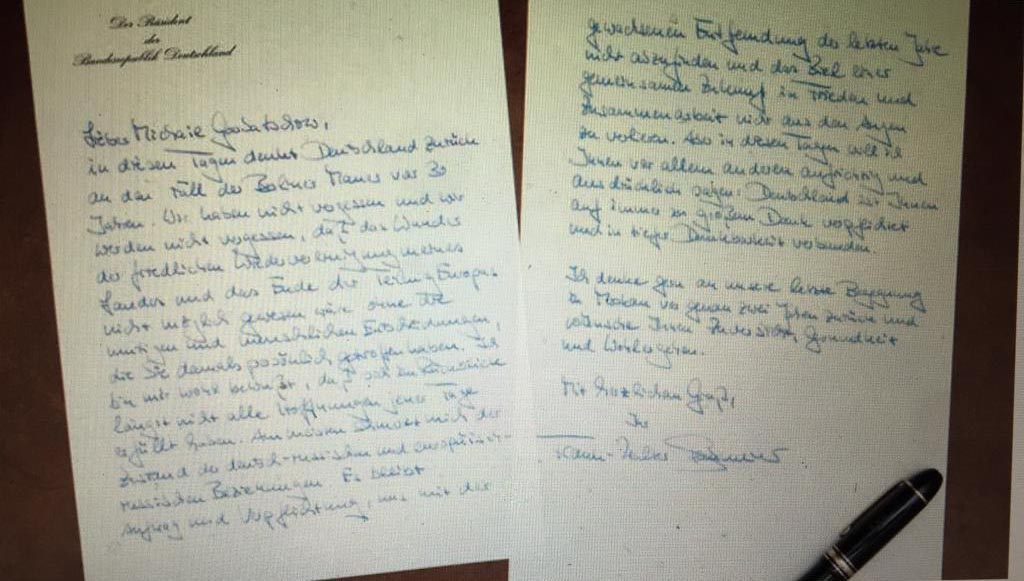 Der Präsident
der
Bundesrepublik Deutschland
Lieber Michail Gorbatschow,
in diesen Tagen denkt Deutschland zurück
an den Fall der Berliner Mauer vor 30
Jahren. Wir haben nicht vergessen und wir
werden nicht vergessen, daß das Wunder
der friedlichen Wiedervereinigung meines
Landes und das Ende der Teilung Europas
nicht möglich gewesen wäre ohne die
mutigen und menschlichen Entscheidungen,
die Sie damals persönlich getroffen haben. Ich
bin mir wohl bewußt, daß sich im Rückblick
längst nicht alle Hoffnungen jener Tage
erfüllt haben. Am meisten schmerzt mich der
Zustand der deutsch-russischen und europäisch-
russischen Beziehungen. Es bleibt
Auftrag und Verpflichtung, uns mit der
gewachsenen Entfremdung der letzten Jahre
nicht abzufinden und das Ziel einer
gemeinsamen Zukunft in Frieden und
Zusammenarbeit nicht aus den Augen
zu verlieren. Also in diesen Tagen will ich
Ihnen vor allem anderen aufrichtig und
ausdrücklich sagen: Deutschland ist Ihnen
auf immer zu großem Dank verpflichtet
und in tiefer Dankbarkeit verbunden.
Ich denke gern an unsere letzte Begegnung
in Moskau vor genau zwei Jahren zurück und
wünsche Ihnen Zuversicht, Gesundheit
und Wohlergehen.
Mit herzlichem Gruß,
Ihr
Frank-Walter Steinmeier